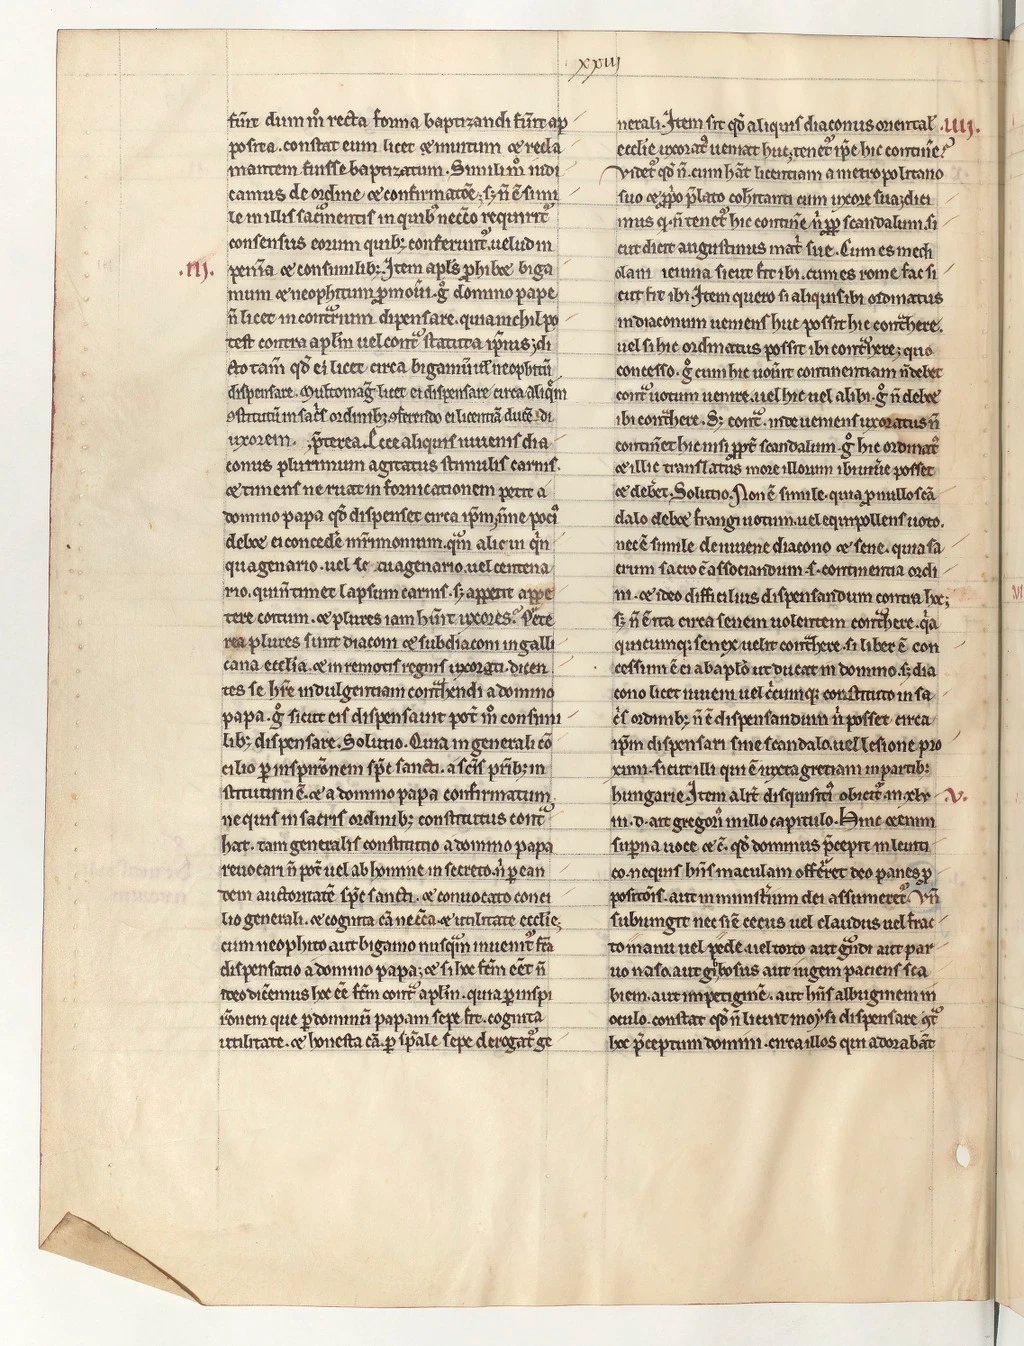 xxiij
fũt dum m̊ recta forma baptizandi fũt ap
posita. constat eum licet et inuitum et recla
mantem fuisse baptizatum. Similit̓ m̊ iudi
camus de ordine et confirmatõe; sꝫ ñ ẽ simi
le in illis sacr̃mentis in quibꝰ necc̃o requirit᷑
consensus eorum quibꝫ conferunt᷑. uelud in
.iij. penĩa et consimilibꝫ. Item apl̃s ꝓhibet biga
mum et neophitum ꝓmoũi. g̊ domino pape
ñ licet in contr̃rium dispensare. quia nichil po
test contra apl̃m uel contᷓ statuta ip̃ius; di
cto tam̃ qd̃ ei licet circa bigamũ ul̃ neophitũ
dispensare. Multo mag̃ licet ei dispensare circa aliq̃m
ꝯstitutũ in sac̃s ordinibꝫ ꝯferendo ei licentiã ducẽdi
uxorem. p̃terea. Ecce aliquis iuuenis dia
conus plurimum agitatus stimulis carnis.
et timens ne ruat in fornicationem petit a
domino papa qd̃ dispenset circa ip̃m, ñne poci᷒
debet ei concede᷑ mr̃imonium. qᷓm alicui qͥn
quagenario. uel se cuagenario. uel centena
rio. qui ñ timet lapsum carnis. sꝫ appetit appe
tere coitum. et plures iam hñt uxores. P̃te
rea plures sunt diaconi et subdiaconi in galli
cana ecclesia. et in remotis regnis uxorati. dicen
tes se hr̃e indulgentiam contrhendi a domino
papa. g̊ sicut eis dispensauit pot̃ m̊ consimi
libꝫ dispensare. Solutio. Quia in generali cõ
cilio ꝑ inspirõnem sp̃c sancti. a scĩs pr̃ibꝫ in
stitutum ẽ. et a domino papa confirmatum,
ne quis in sacris ordinibꝫ constitutus contᷓ
hat. tam generalis constitutio a domino papa
reuocari ñ pot̃ uel ab homine in secreto. ñ ꝑ ean
dem auctoritatẽ sp̃c sancti. et conuocato conci
lio generali. et cognita cã necc̃a et utilitate ecclie;
cum neophito aut bigamo nusqᷓm inuenit᷑ fc̃a
dispensatio a domino papa; et si hoc fc̃m eẽt ñ
ideo dicẽmus hoc eẽ fc̃m contᷓ apl̃m. quia ꝑ inspi
rõnem que ꝑ dominũ papam sepe fit. cognita
utilitate. et honesta cã. ꝑ sp̃ale sepe derogat᷑ ge
nerali. Item sit qd̃ aliquis diaconus oriental̓ .iiij.
ecclie uxoratꝰ ueniat huc, tenet᷑ ip̃e hic contine᷑?
Videt᷑ qd̃ ñ. cum hãt licentiam a metropolitano
suo et ꝓpͥo p̃lato cohitanti cum uxore sua; dici
mus qͥ ñ tenet᷑ hic contine᷑ ñ ꝓp̃ scandalum. si
cut dicit augustinus mat̓ sue. Cum es medi
olani ieiuna sicut fit ibi. cum es rome fac si
cut fit ibi. Item quero si aliquis ibi ordinatus
in diaconum ueniens huc possit hic contᷓhere.
uel si hic ordinatus possit ibi contᷓhere; quo
concesso. g̊ cum hic uoũit continentiam ñ debet
contᷓ uotum uenire. uel hic uel alibi. g̊ ñ debet
ibi contᷓhere. Sꝫ contᷓ. inde ueniens uxoratus ñ
continet hic nisi ꝓpt̓ scandalum. g̊ hic ordinatꝰ
et illic translatus more illorum ibi uiue᷑ posset
et debet. Solutio. Non ẽ simile. quia ꝑ nullo scã
dalo debet frangi uotum. uel equipollens uoto.
nec ẽ simile de iuuene diacono et sene. quia sa
crum sacro ẽ associandum .s. continentia ordi
ni. et ideo difficilius dispensandum contra hoc;
sꝫ ñ ẽ ita circa senem uolentem contᷓhere. qᷓa
quicumqꝫ senex uelit contᷓhere. si liber ẽ con
cessum ẽ ei ab ap̃lo ut ducat in domino. sꝫ dia
cono licet iuueni uel c̓cumqꝫ constituto in sa
c̓s ordinibꝫ ñ ẽ dispensandum ñ posset circa
ip̃m dispensari sine scandalo. uel lesione pro
ximi. sicut illi qui ẽ iuxta greciam in partibꝫ
hungarie. Item alit̓ disquisit᷑ obicit᷑ in xlix .v.
iij. d. ait gregoriꝰ in illo capitulo. Hinc etenim
superna uoce et c̃. qd̃ dominus p̃cepit in leuiti
co. ne quis hñs maculam offerret deo panes ꝓ
positõis. aut in ministr̃ium dei assumeret᷑. Vñ
subiungit nec si ẽ cecus uel claudus uel frac
to manu uel pede. uel torto aut gr̃ndi aut par
uo naso. aut gybosus aut iugem paciens sca
biem. aut inpetiginẽ. aut hñs albuginem in
oculo. constat qd̃ ñ licuit moysi dispensare ꝯtᷓ
hoc p̃ceptum domini. circa illos qui adorabãt